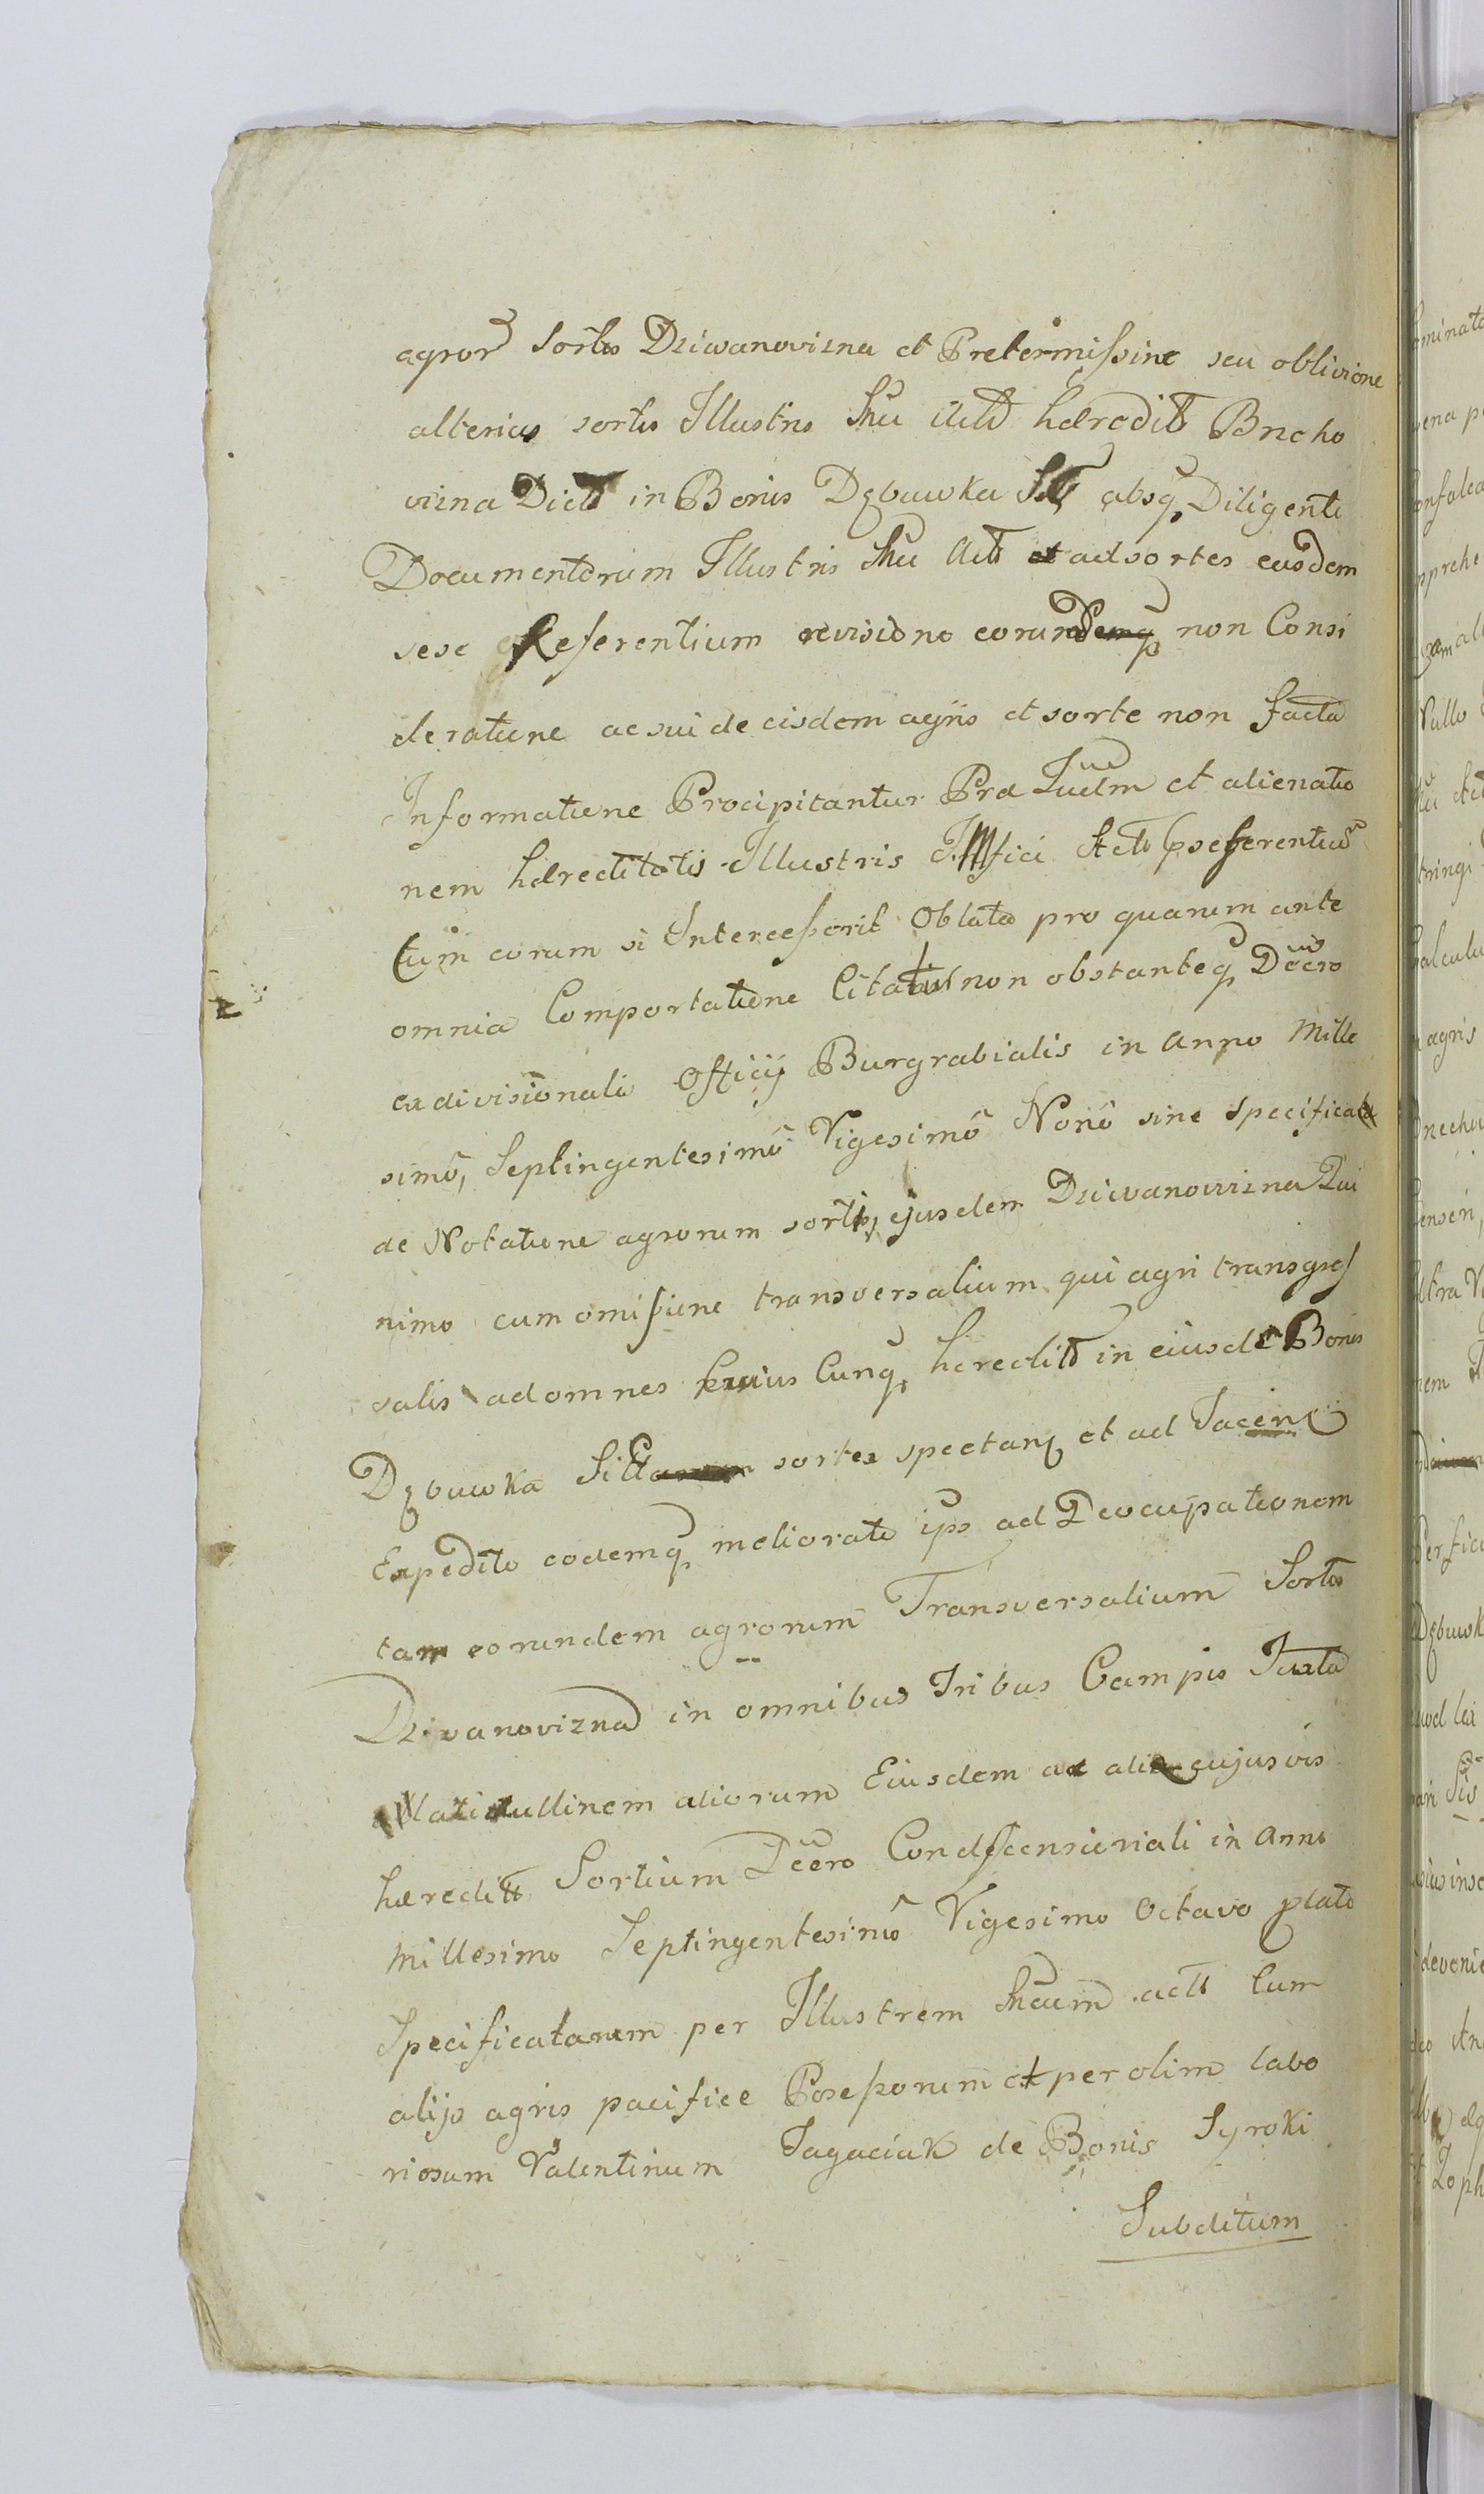 agror Sortis Dziwanovizna et Pretermissine seu oblivione
alterius sortis Illustris Actt hæreditt Bneho
vizna Dictt in Bonis Dębuwka absq Diligenti
Documentorum Illustris Actt et ad sortes eusdem
sese Referentium revisione eorundemq non Consi
deratione ac sui de eisdem agris et sorte non facta
Informatione Precipitantur Præ Judm et alienatio
nem hæreditatis Illustris Actt præferentiu
Cum eorum si Intercesserit Oblata pro quarum ante
omnia Comportatione Citatur non obstanteq Decro
exdivisionali Officij Burgrabialis in Anno Mille
simo, Septingentesimo Vigesimo Nono sine specificata
de Notatione agrorum sortis ejusdem Dziwanowizna Qui
nimo cum omissione transversalium qui agri transgres
salis ad omnes Cunq hereditt in eiusde Bonis
Dębuwka sortes spectanq et ad Jacen
Expedito eodemq meliorato ips ad Deocupationem
tam eorundem agrorum Transversalium Sortis
Dzivanovizna in omnibus Tribus Campis Juxta
latitudinem aliorum Eiusdem ac alia cujusvis
hæreditt Sortium Decro Condscensionali in Anno
Millesimo Septingentesimo Vigesimo Octavo plato
Specificatarum per Illustrem actt Cum
alijs agris pacifice Possessorum et per olim labo
riosum Valentinum Jagaciak de Bonis Syroki
Subditum